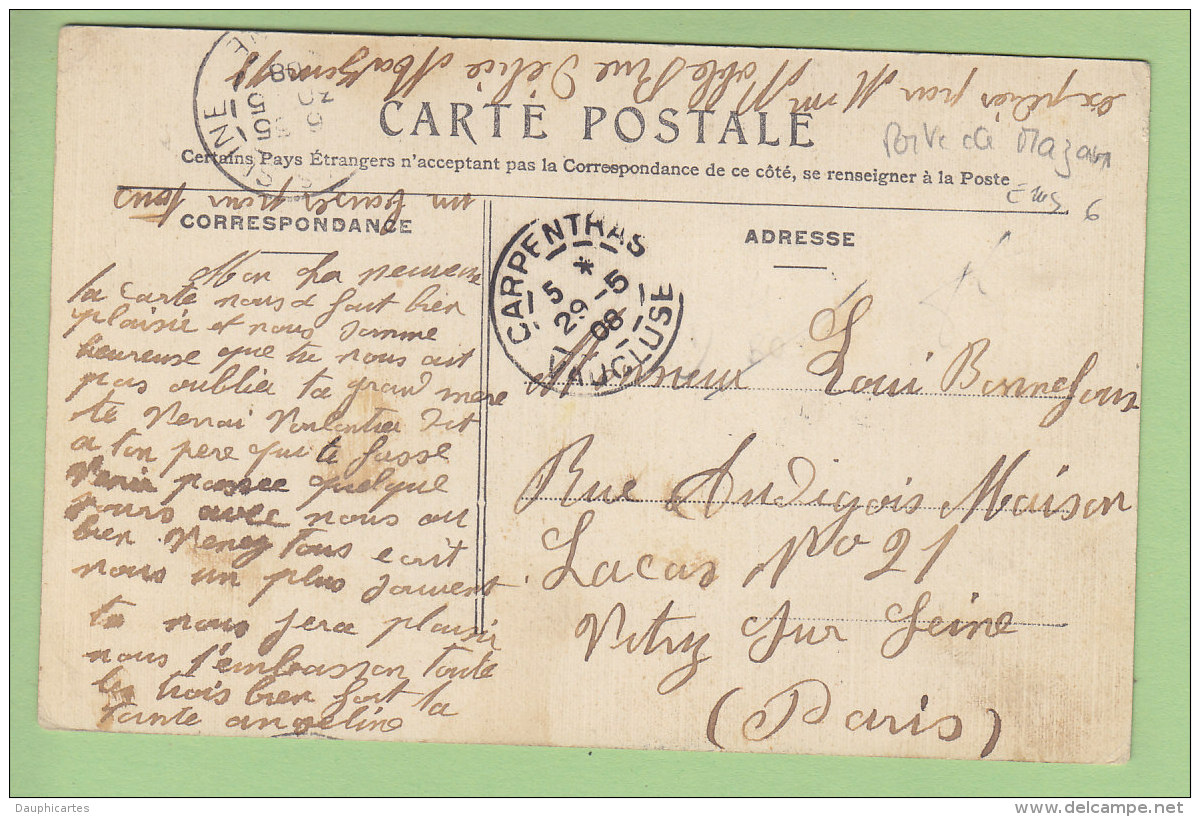 expédiée par Mme Noble Rue Délice Mazan
CARTE POSTALE
Certains Pays Étrangers n'acceptant pas la Correspondance de ce côté, se renseigner à la Poste
Porte de Mazan
6
un baiser pour tous
CORRESPONDANCE
ADRESSE
Mon
ta carte nous a fait bien
plaisir et nous somme
heureuse que tu nous ait
pas oublier ta grand mere
te Verrai Volontier dit
a ton pere qui te fasse
Venir passee quelque
jours avec nous ou
bien Venez tous ecrit
nous un plus souvent
tu nous fera plaisir
nous t'embrasson toute
les trois bien fort ta
tante angeline
CARPENTRAS
5 * 5
29 - 5
08
VAUCLUSE
Monsieur Loui Bonnefoux
Rue Audigois Maison
Lacas No 21
Vitry sur Seine
(Paris)
SEINE
Dauphicartes
www.delcampe.net